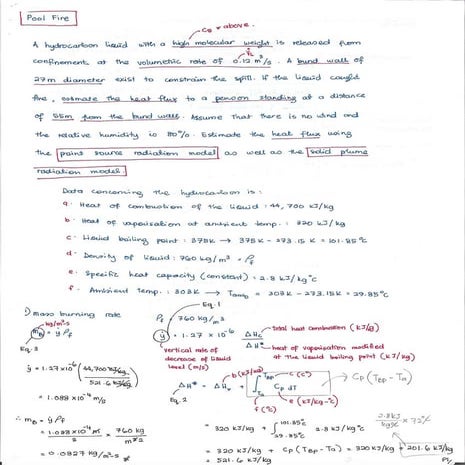 Pool Fire
C5 & above.
A hydrocarbon liquid with a high molecular weight is released from
confinement at the volumetric rate of 0.12 m³/s. A bund wall of
27m diameter exist to constrain the spill. If the liquid caught
fire, estimate the heat flux to a person standing at a distance
of 55m from the bund wall. Assume that there is no wind and
the relative humidity is 80%. Estimate the heat flux using
the point source radiation model as well as the solid plume
radiation model.
Data concerning the hydrocarbon is :
a. Heat of combustion of the liquid : 44,700 kJ/kg
b. Heat of vaporisation at ambient temp. : 320 kJ/kg
c. Liquid boiling point : 375K → 375K - 273.15 K = 101.85°C
d. Density of liquid : 760 kg/m³ = ρf
e. Specific heat capacity (constant) = 2.8 kJ/kg°C
f. Ambient temp. : 303K → Tamb = 303K - 273.15K = 29.85°C
1) mass burning rate ρf 760 kg/m³ Eq. 1
kg/m²s
mB = ẏ ρf ẏ = 1.27 × 10⁻⁶ ΔHc / ΔH* total heat combustion (kJ/kg)
Eq. 3 vertical rate of decrease of liquid level (m/s) heat of vaporisation modified at the liquid boiling point (kJ/kg)
ẏ = 1.27×10⁻⁶ (44,700 kJ/kg / 521.6 kJ/kg) ΔH* = ΔHv + ∫ Ta TBP Cp dT Cp (TBP - Ta)
b (kJ/kg) c (°C) e (kJ/kg·°C) f (°C)
Eq. 2
= 1.088 × 10⁻⁴ m/s
∴ mB = ẏ ρf = 320 kJ/kg + ∫ 29.85°C 101.85°C 2.8 kJ/kg°C
2.8 kJ / kg°C × 72°C
= 1.088 × 10⁻⁴ m/s × 760 kg/m³ = 320 kJ/kg + Cp (TBP - Ta) = 320 kJ/kg + 201.6 kJ/kg
= 0.0827 kg/m²s = 521.6 kJ/kg